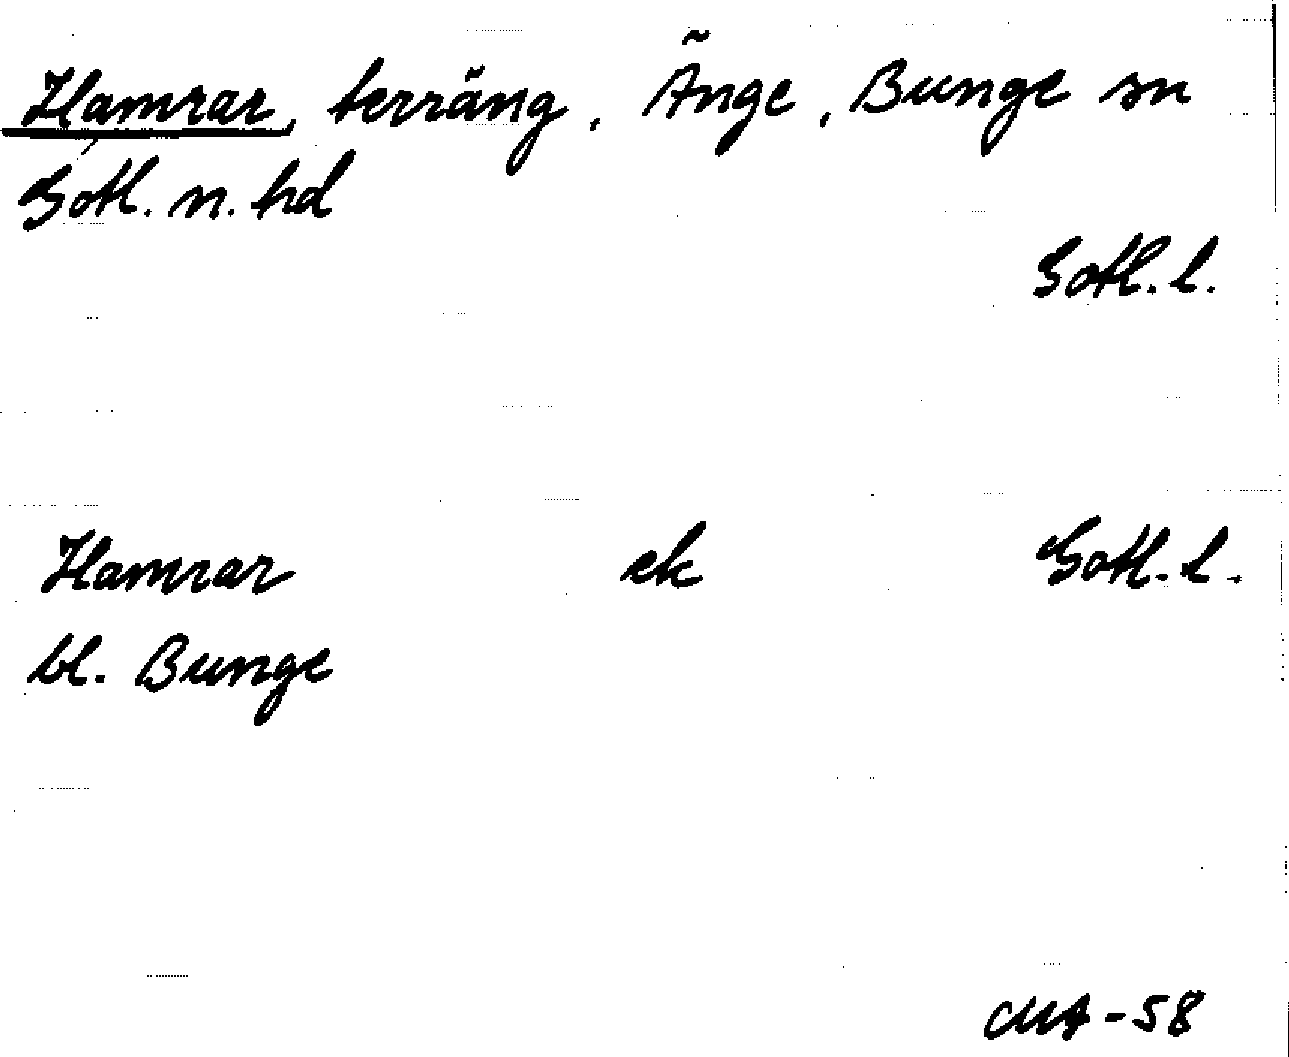 Hamrar, terräng, Änge, Bunge sn
Gotl. n. hd
Gotl. l.
Hamrar ek Gotl. l.
bl. Bunge
MA-58